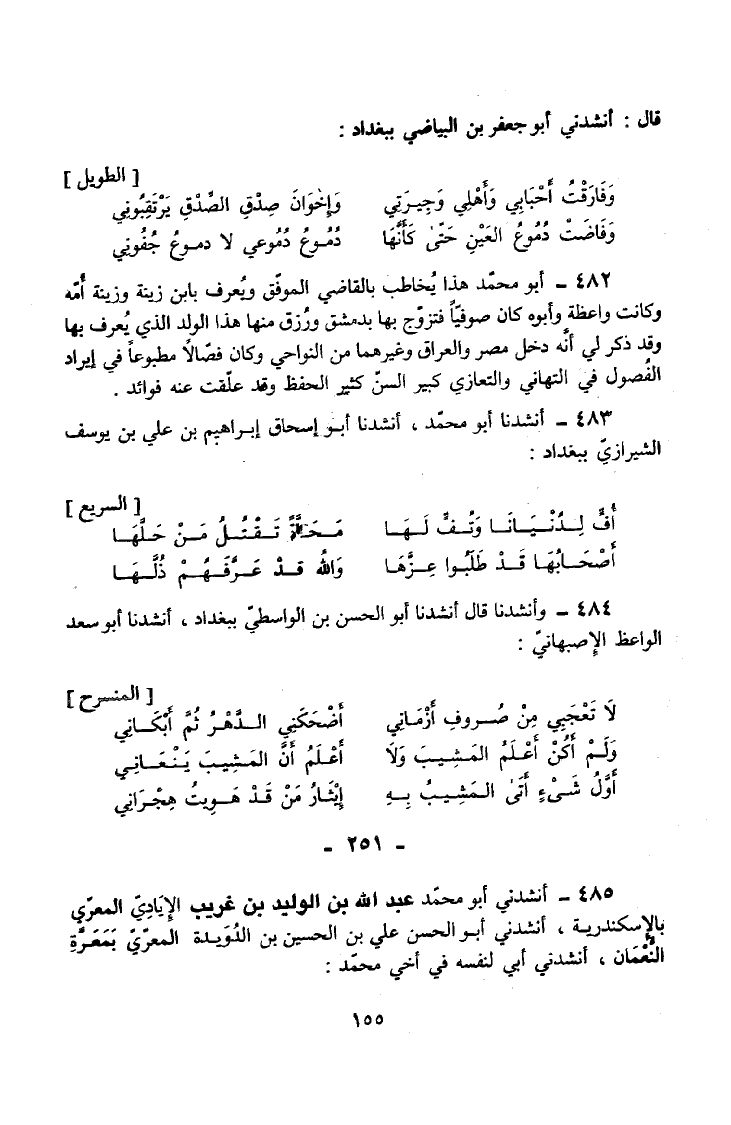 قال : أنشدني أبو جعفر بن البياضي ببغداد :
[ الطويل ]
وَفَارَقْتُ أَحْبَابِي وَأَهْلِي وَجِيـرَتِي    وَإِخْوَانَ صِدْقِ الصِّدْقِ يَرْتَقِبُونِي
وَفَاضَتْ دُمُوعُ العَيْنِ حَتَّىٰ كَأَنَّهَا    دُمُـوعُ دُمُوعي لا دموعُ جُفُوني
٤٨٢ - أبو محمّد هذا يُخاطب بالقاضي الموفّق ويُعرف بابن زينة وزينة أُمّه
وكانت واعظة وأبوه كان صوفيّاً فتزوّج بها بدمشق ورُزق منها هذا الولد الذي يُعرف بها
وقد ذكر لي أنَّه دخل مصر والعراق وغيرهما من النواحي وكان فصّالاً مطبوعاً في إيراد
الفُصول في التهاني والتعازي كبير السنّ كثير الحفظ وقد علّقت عنه فوائد .
٤٨٣ - أنشدنا أبو محمّد ، أنشدنا أبـو إسحاق إبـراهيم بن علي بن يوسف
الشيرازيّ ببغداد :
[ السريع ]
أُفٍّ لِـدُنْـيَـانَـا وَتُـفٍّ لَـهَـا    مَـحَـلَّةٌ تَـقْـتُـلُ مَـنْ حَلَّهَـا
أَصْحَـابُهَـا قَـدْ طَلَبُـوا عِـزَّهَـا    وَاللهُ قـدْ عَـرَّفَـهُـمْ ذُلَّـهَـا
٤٨٤ - وأنشدنا قال أنشدنا أبو الحسن بن الواسطيّ ببغداد ، أنشدنا أبو سعد
الواعظ الإصبهانيّ :
[ المنسرح ]
لَا تَعْجَبِي مِنْ صُـروفِ أَزْمَـانِي    أَضْحَكَنِي الـدَّهْـرُ ثُمَّ أَبْكَـانِي
وَلَـمْ أَكُنْ أَعْلَمُ المَشيـبَ وَلَا    أَعْلَمُ أَنَّ المَشِيبَ يَنْـعَـانِـي
أَوَّلُ شَـيْءٍ أَتَىٰ المَـشِيبُ بِـهِ    إِيْثَـارُ مَنْ قَـدْ هَـوِيتُ هِجْـرَانِي
- ٢٥١ -
٤٨٥ - أنشدني أبو محمّد عبد الله بن الوليد بن غريب الإيَاديّ المعرّي
بالإسكندرية ، أنشدني أبـو الحسن علي بن الحسين بن الدُوَيدة المعرّيّ بَمَعَرَّةِ
النُّعْمَان ، أنشدني أبي لنفسه في أخي محمّد :
١٥٥